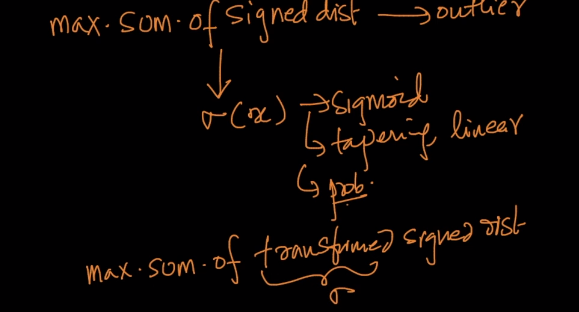 max. sum. of signed dist → outlier
↓
σ(x) → sigmoid
↳ tapering, linear
↳ prob.
max. sum. of transfrmed signed dist
σ